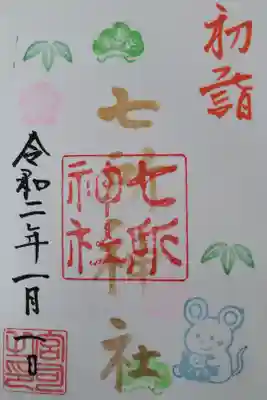 初詣
七所神社
七所
神社
令和二年一月一日